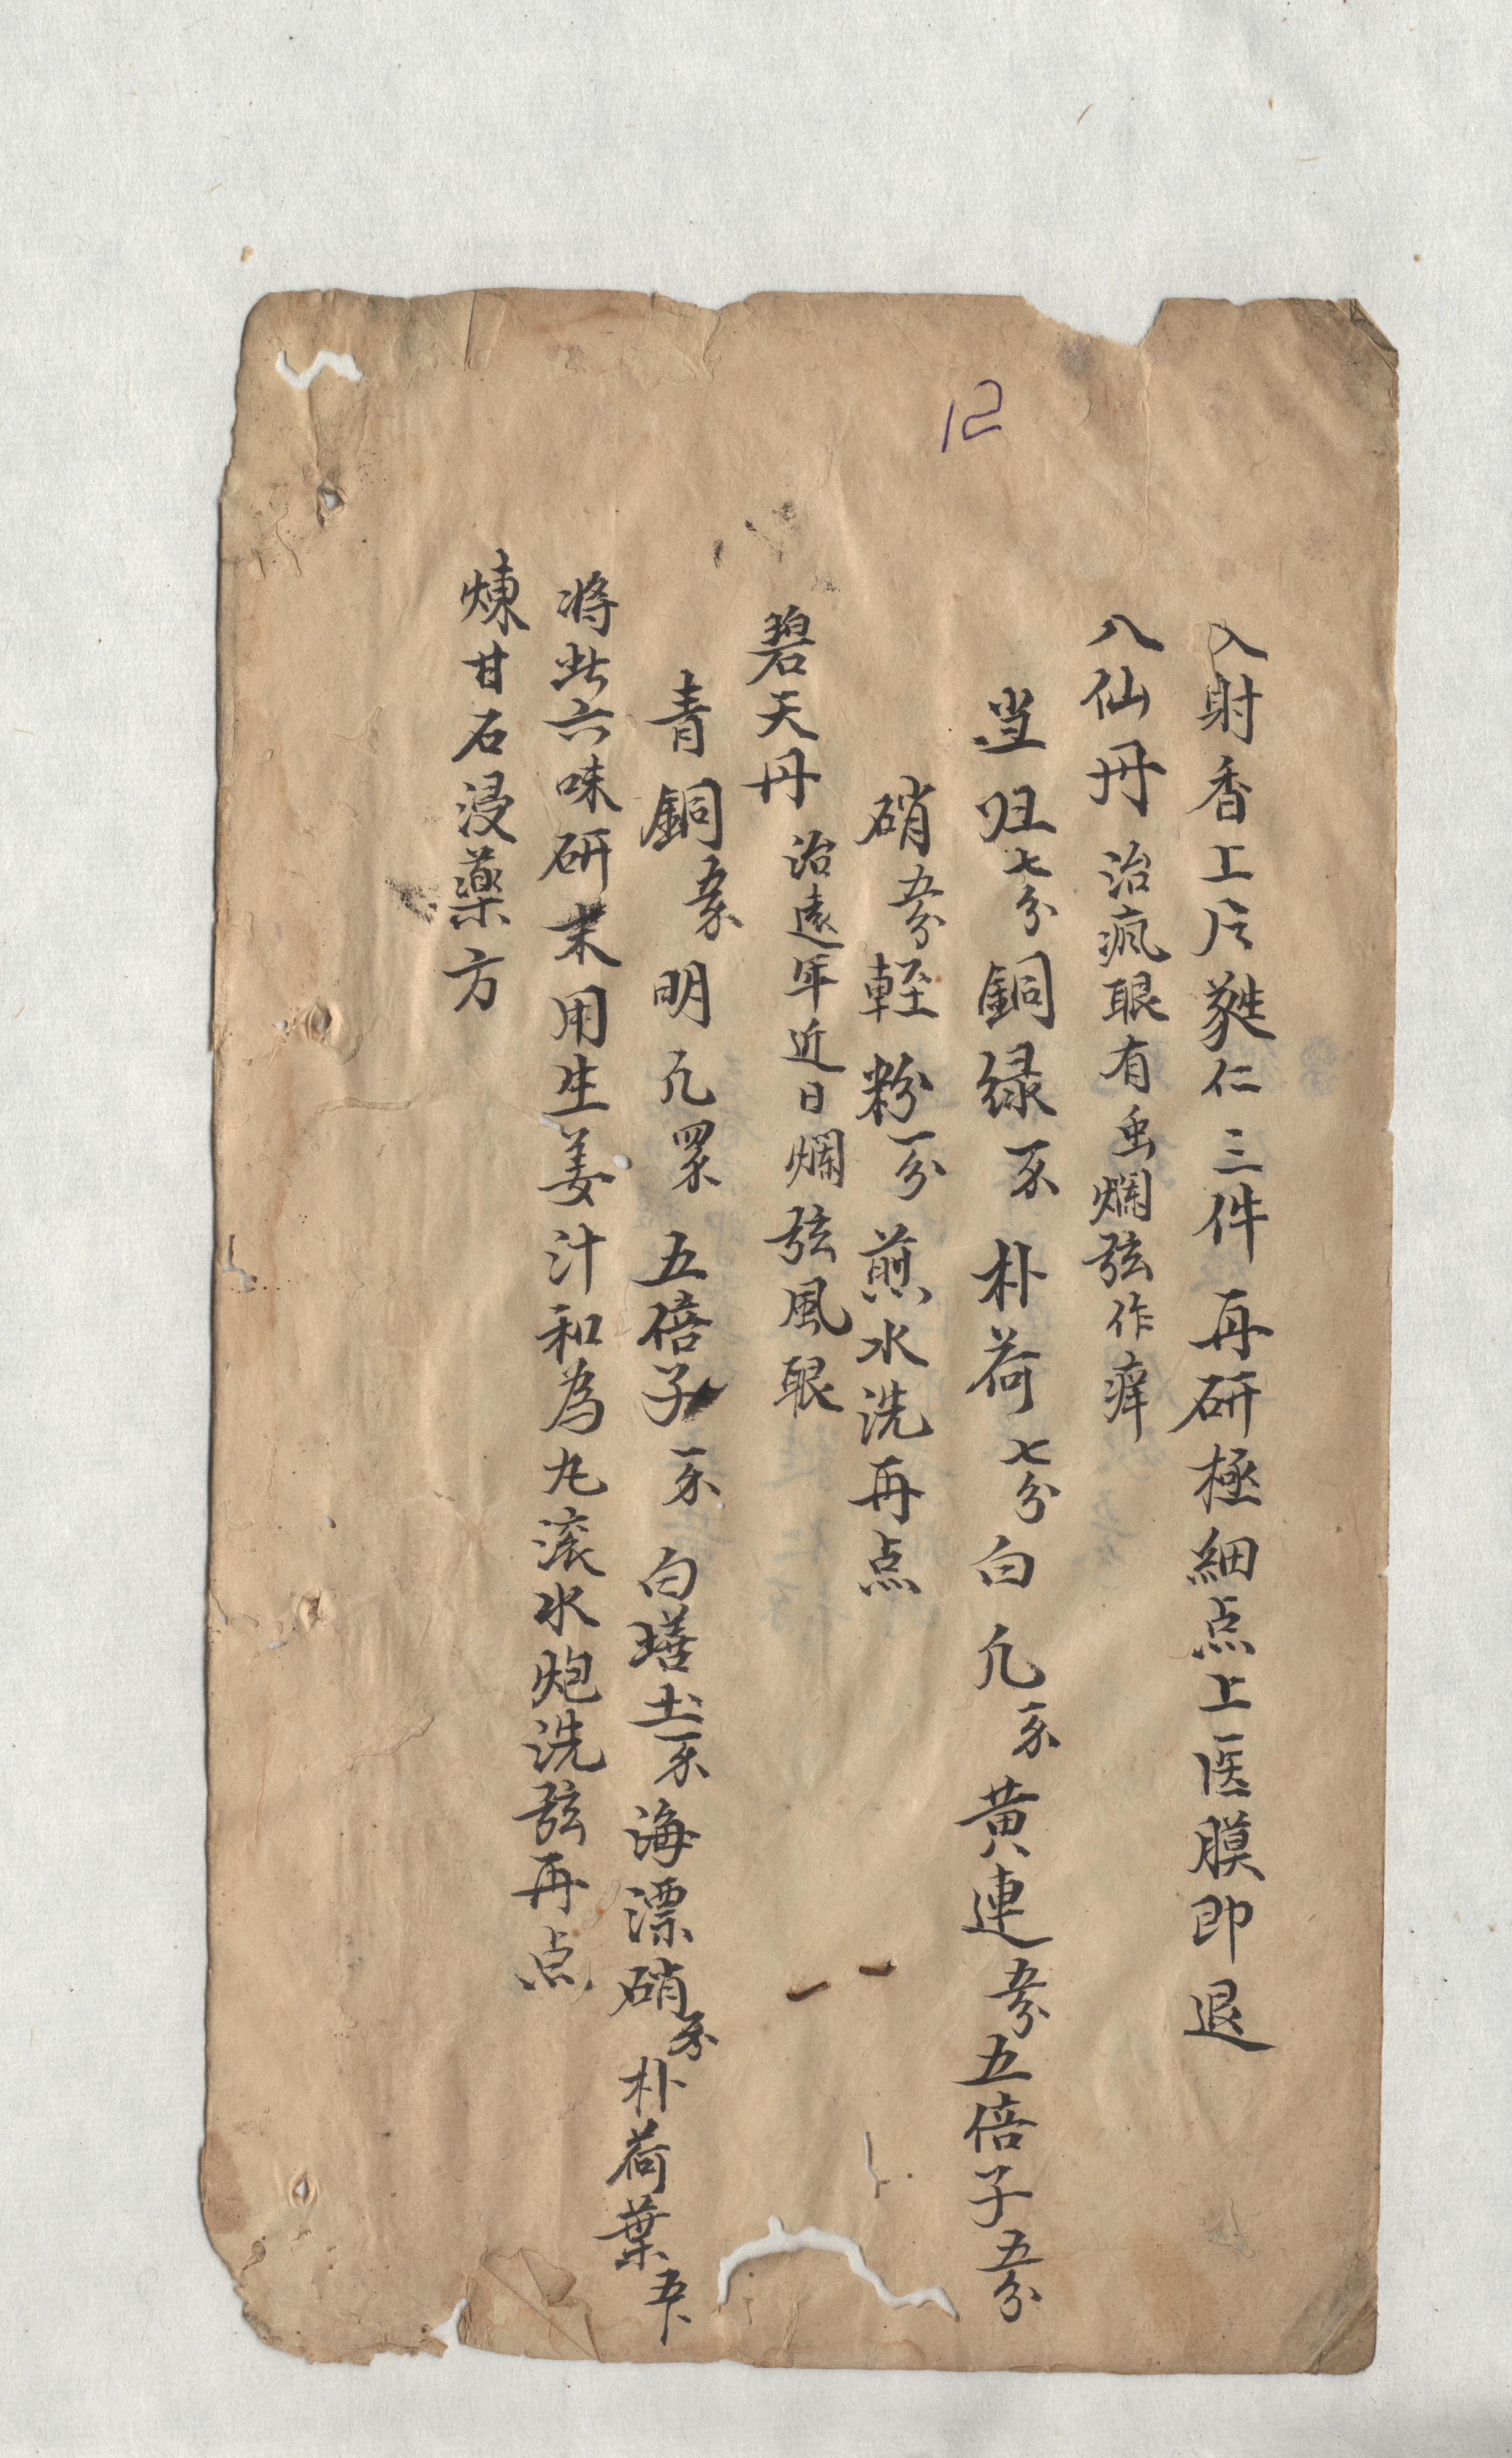 12
入射香上片蕤仁三件再研極細点上医膜即退
八仙丹 治瘋眼有虫爛弦作痒
当归七分 銅绿一禾 朴荷七分 白凢一禾 黄連五分 五倍子五分
硝五分 輕粉一分 煎水洗再点
碧天丹 治遠年近日爛弦風眼
青銅五禾 明凢四禾 五倍子一禾 白墡土一禾 海漂硝 朴荷葉
将此六味研末用生姜汁和為丸滚水炮洗弦再点
煉甘石浸藥方